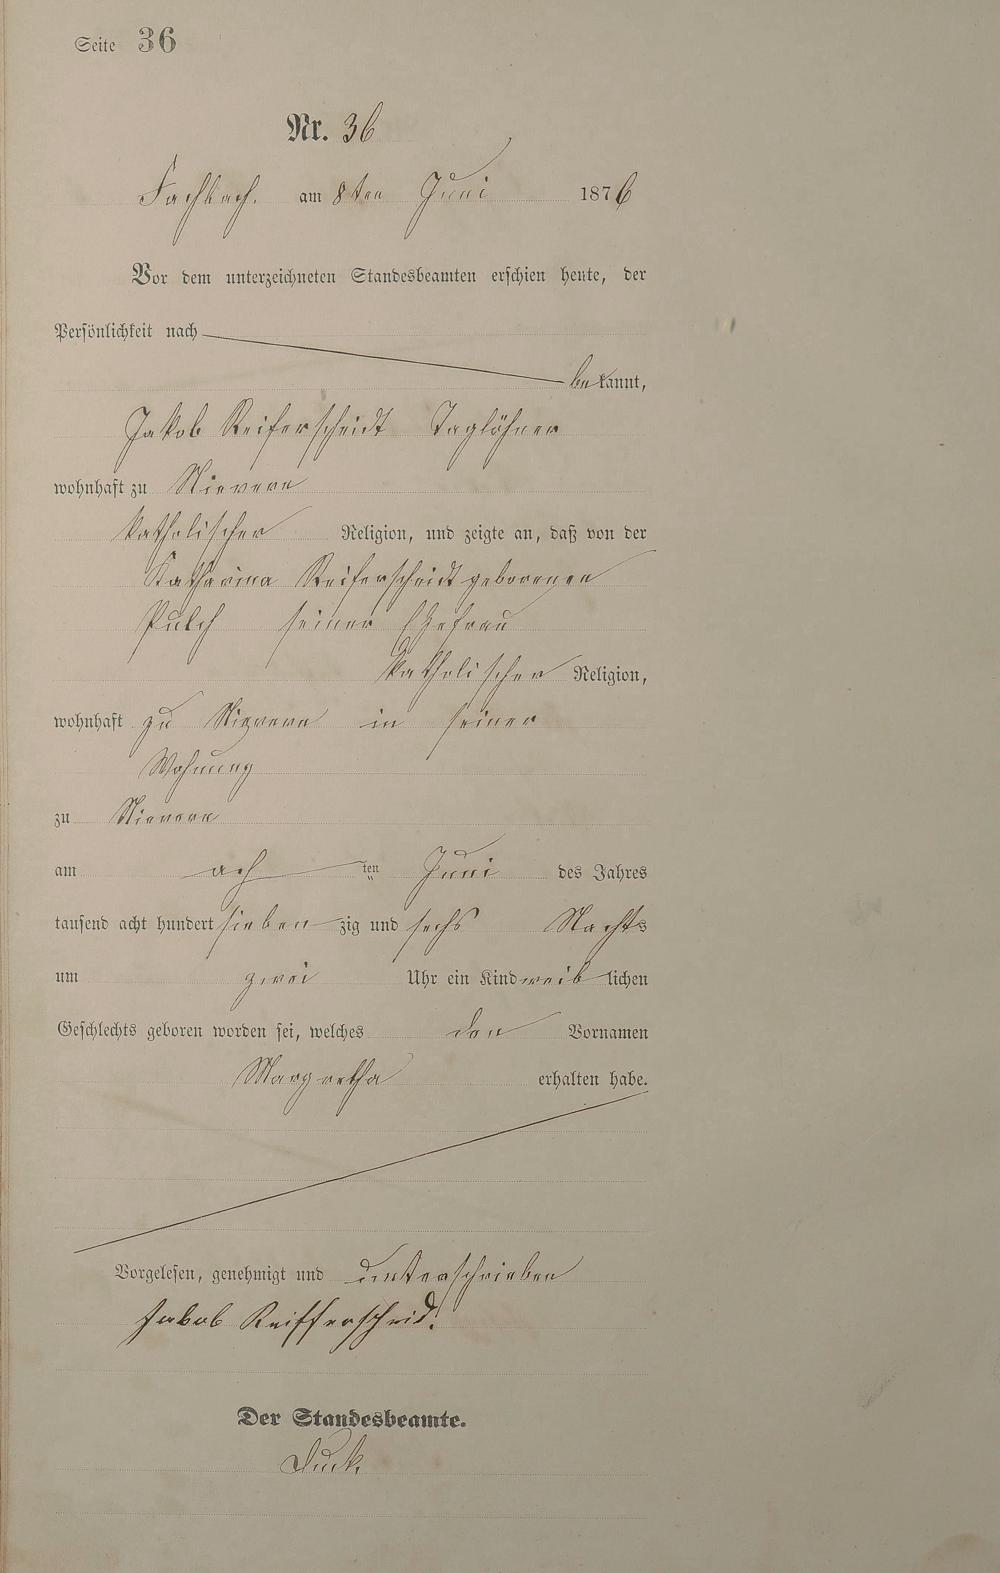 Seite 36
Nr. 36
Fachbach. am 8ten Juni 1876
Vor dem unterzeichneten Standesbeamten erschien heute, der
Persönlichkeit nach
bekannt,
Jakob Reiferscheidt Taglöhner
wohnhaft zu Nievern
katholischer Religion, und zeigte an, daß von der
Katharina Reiferscheidt geborenen
Pulch seiner Ehefrau
katholischer Religion,
wohnhaft zu Nievern in seiner
Wohnung
zu Nievern
am ach ten Juni des Jahres
tausend acht hundert sieben zig und sechs Nachts
um zwei Uhr ein Kind weib lichen
Geschlechts geboren worden sei, welches den Vornamen
Margretha erhalten habe.
Vorgelesen, genehmigt und unterschrieben
Jakob Reifferscheid.
Der Standesbeamte.